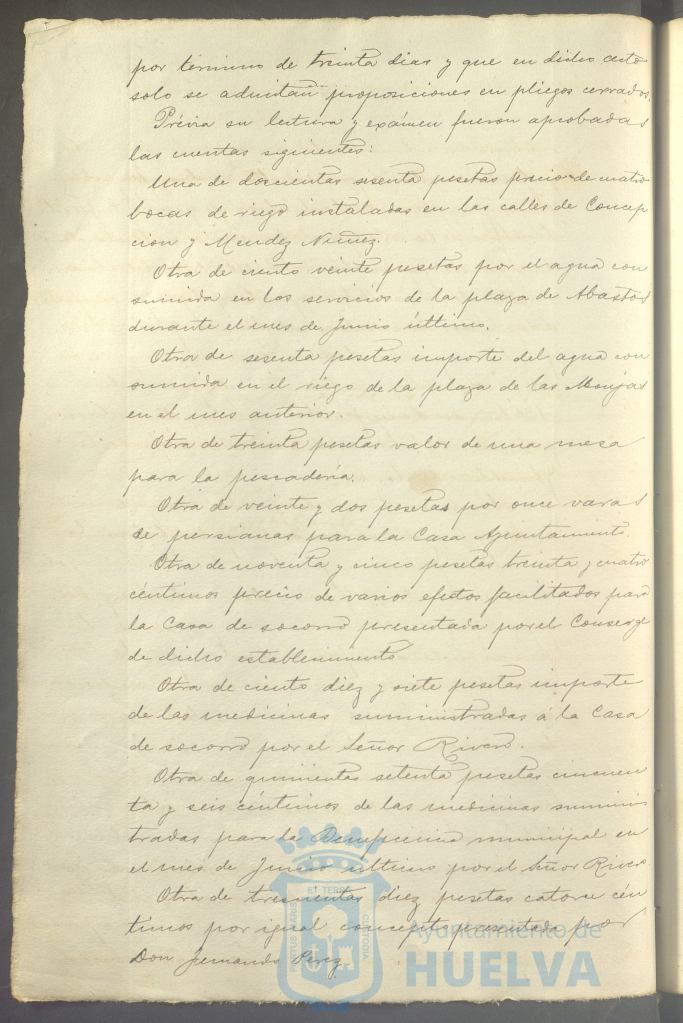 por término de treinta dias y que en dicho acto
solo se admitan proposiciones en pliegos cerrados.
Prévia su lectura y exámen fueron aprobadas
las cuentas siguientes:
Una de doscientas sesenta pesetas precio de cuatro
bocas de riego instaladas en las calles de Concep
cion y Mendez Nuñez.
Otra de ciento veinte pesetas por el agua con
sumida en los servicios de la plaza de Abastos
durante el mes de Junio último.
Otra de sesenta pesetas importe del agua con
sumida en el riego de la plaza de las Monjas
en el mes anterior.
Otra de treinta pesetas valor de una mesa
para la pescadería.
Otra de veinte y dos pesetas por once varas
de persianas para la Casa Ayuntamiento.
Otra de noventa y cinco pesetas treinta y cuatro
céntimos precio de varios efectos facilitados para
la Casa de socorro presentada por el Conserge
de dicho establecimiento
Otra de ciento diez y siete pesetas importe
de las medicinas suministradas á la Casa
de socorro por el Señor Rivero.
Otra de quinientas setenta pesetas cincuen
ta y seis céntimos de las medicinas suminis
tradas para la Beneficencia municipal en
el mes de Junio último por el Señor Rivero
Otra de trescientas diez pesetas catorce cén
timos por igual concepto presentada por
Don Fernando Perez
PORTUS MARIS ET TERRE CUSTODIA
Ayuntamiento de
HUELVA